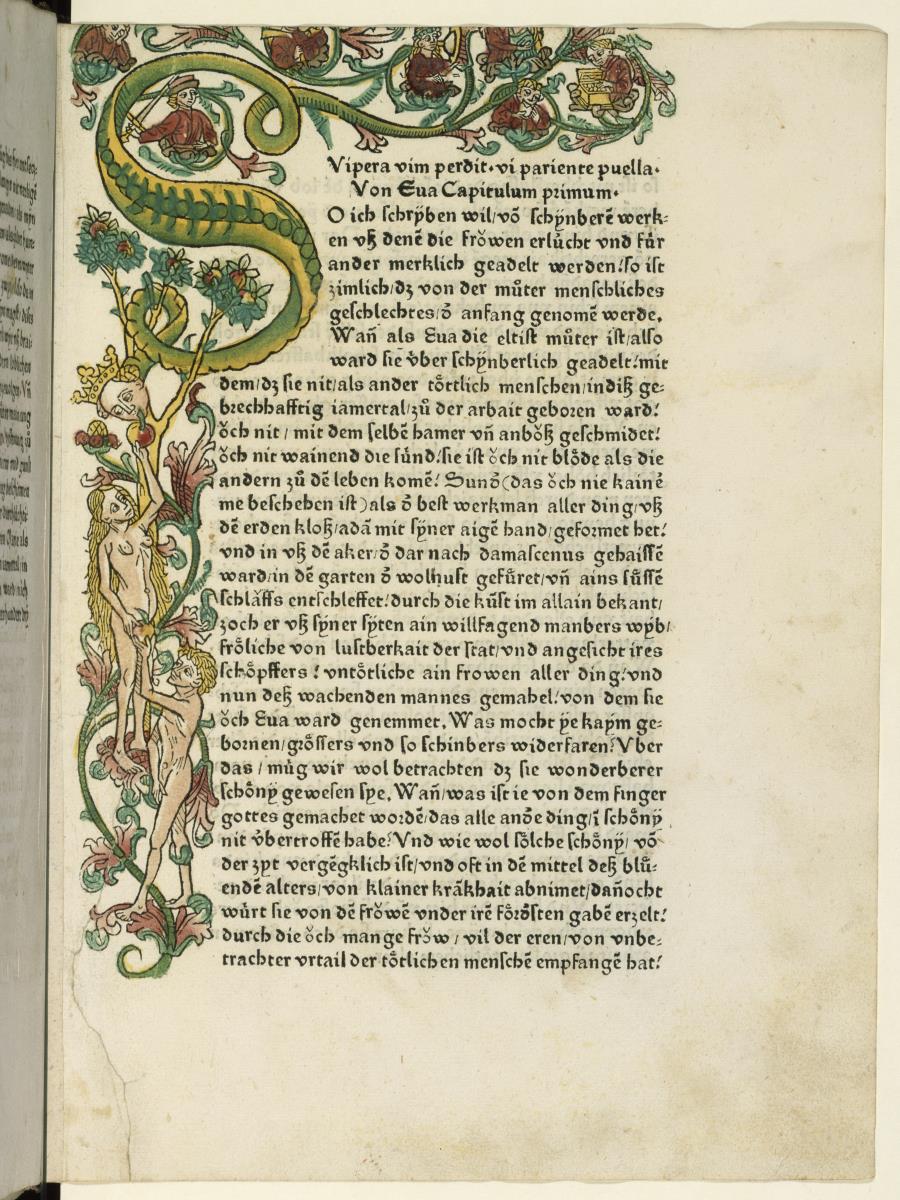 Vipera vim perdit·vi pariente puella·
Von Eua Capitulum primum·
O ich schrÿben wil/võ schÿnberẽ werk⸗
en vß denẽ die frŏwen erlücht vnd für
ander merklich geadelt werden/so ist
zimlich/dz von der můter menschliches
geschlechtes/ð anfang genomẽ werde.
Wañ als Eua die eltist můter ist/also
ward sie v̈ber schÿnberlich geadelt/mit
dem/dz sie nit/als ander tötlich menschen/indiß ge⸗
brechhafftig iamertal/zů der arbait geboren ward/
ŏch nit/mit dem selbẽ hamer vñ anböß geschmidet/
ŏch nit wainend die sünd/sie ist ŏch nit blöde als die
andern zů dẽ leben komẽ/Sunð(das ŏch nie kainẽ
me bescheben ist)als ð best werkman aller ding/vß
dẽ erden kloß/adã mit sÿner aigẽ hand/geformet het/
vnd in vß dẽ aker/ð dar nach damascenus gehaissẽ
ward/in dẽ garten ð wolhust gefüret/vñ ains süssẽ
schlăffs entschleffet/durch die kũst im allain bekant/
zoch er vß sÿner sÿten ain willfagend manbers wÿb/
fröliche von lustberkait der stat/vnd angesicht ires
schöpffers/vntötliche ain frowen aller ding/vnd
nun deß wachenden mannes gemahel/von dem sie
ŏch Eua ward genemmet. Was mocht ÿe kaÿm ge⸗
bornen/grössers vnd so schinbers widerfaren/Vber
das/můg wir wol betrachten dz sie wonderberer
schönÿ gewesen sÿe. Wañ/was ist ie von dem finger
gottes gemachet wordẽ/das alle anðe ding/ĩ schönÿ
nit v̈bertroffẽ habe/Vnd wie wol sölche schönÿ/võ
der zÿt vergẽgklich ist/vnd oft in dẽ mittel deß blü⸗
endẽ alters/von klainer krãkhait abnimet/dañocht
würt sie von dẽ frŏwẽ vnder irẽ förðsten gabẽ erzelt/
durch die ŏch mange frŏw/vil der eren/von vnbe⸗
trachter vrtail der tötlichen menschẽ empfangẽ hat/